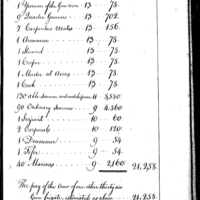 1 Yeoman of the Gun room 13 78.
9 Quarter Gunners 13 702
2 Carpenters Mates 13 156.
1 Armourer 13 78.
1 Steward 13 78.
1 Cooper 13 78.
1 Master at Arms 13 78.
1 Cook 13 78.
130 able Seamen and midshipmen 11
90 Ordinary Seamen 9 4.860.
1 Serjeant 10 60
2 Corporals 10 120.
1 Drummer 9 54
1 Fifer 9 54
40 Marines 9 2,160. 21,258.
The pay of the crew of one other thirty six
Gun frigate estimated as above 21,258.